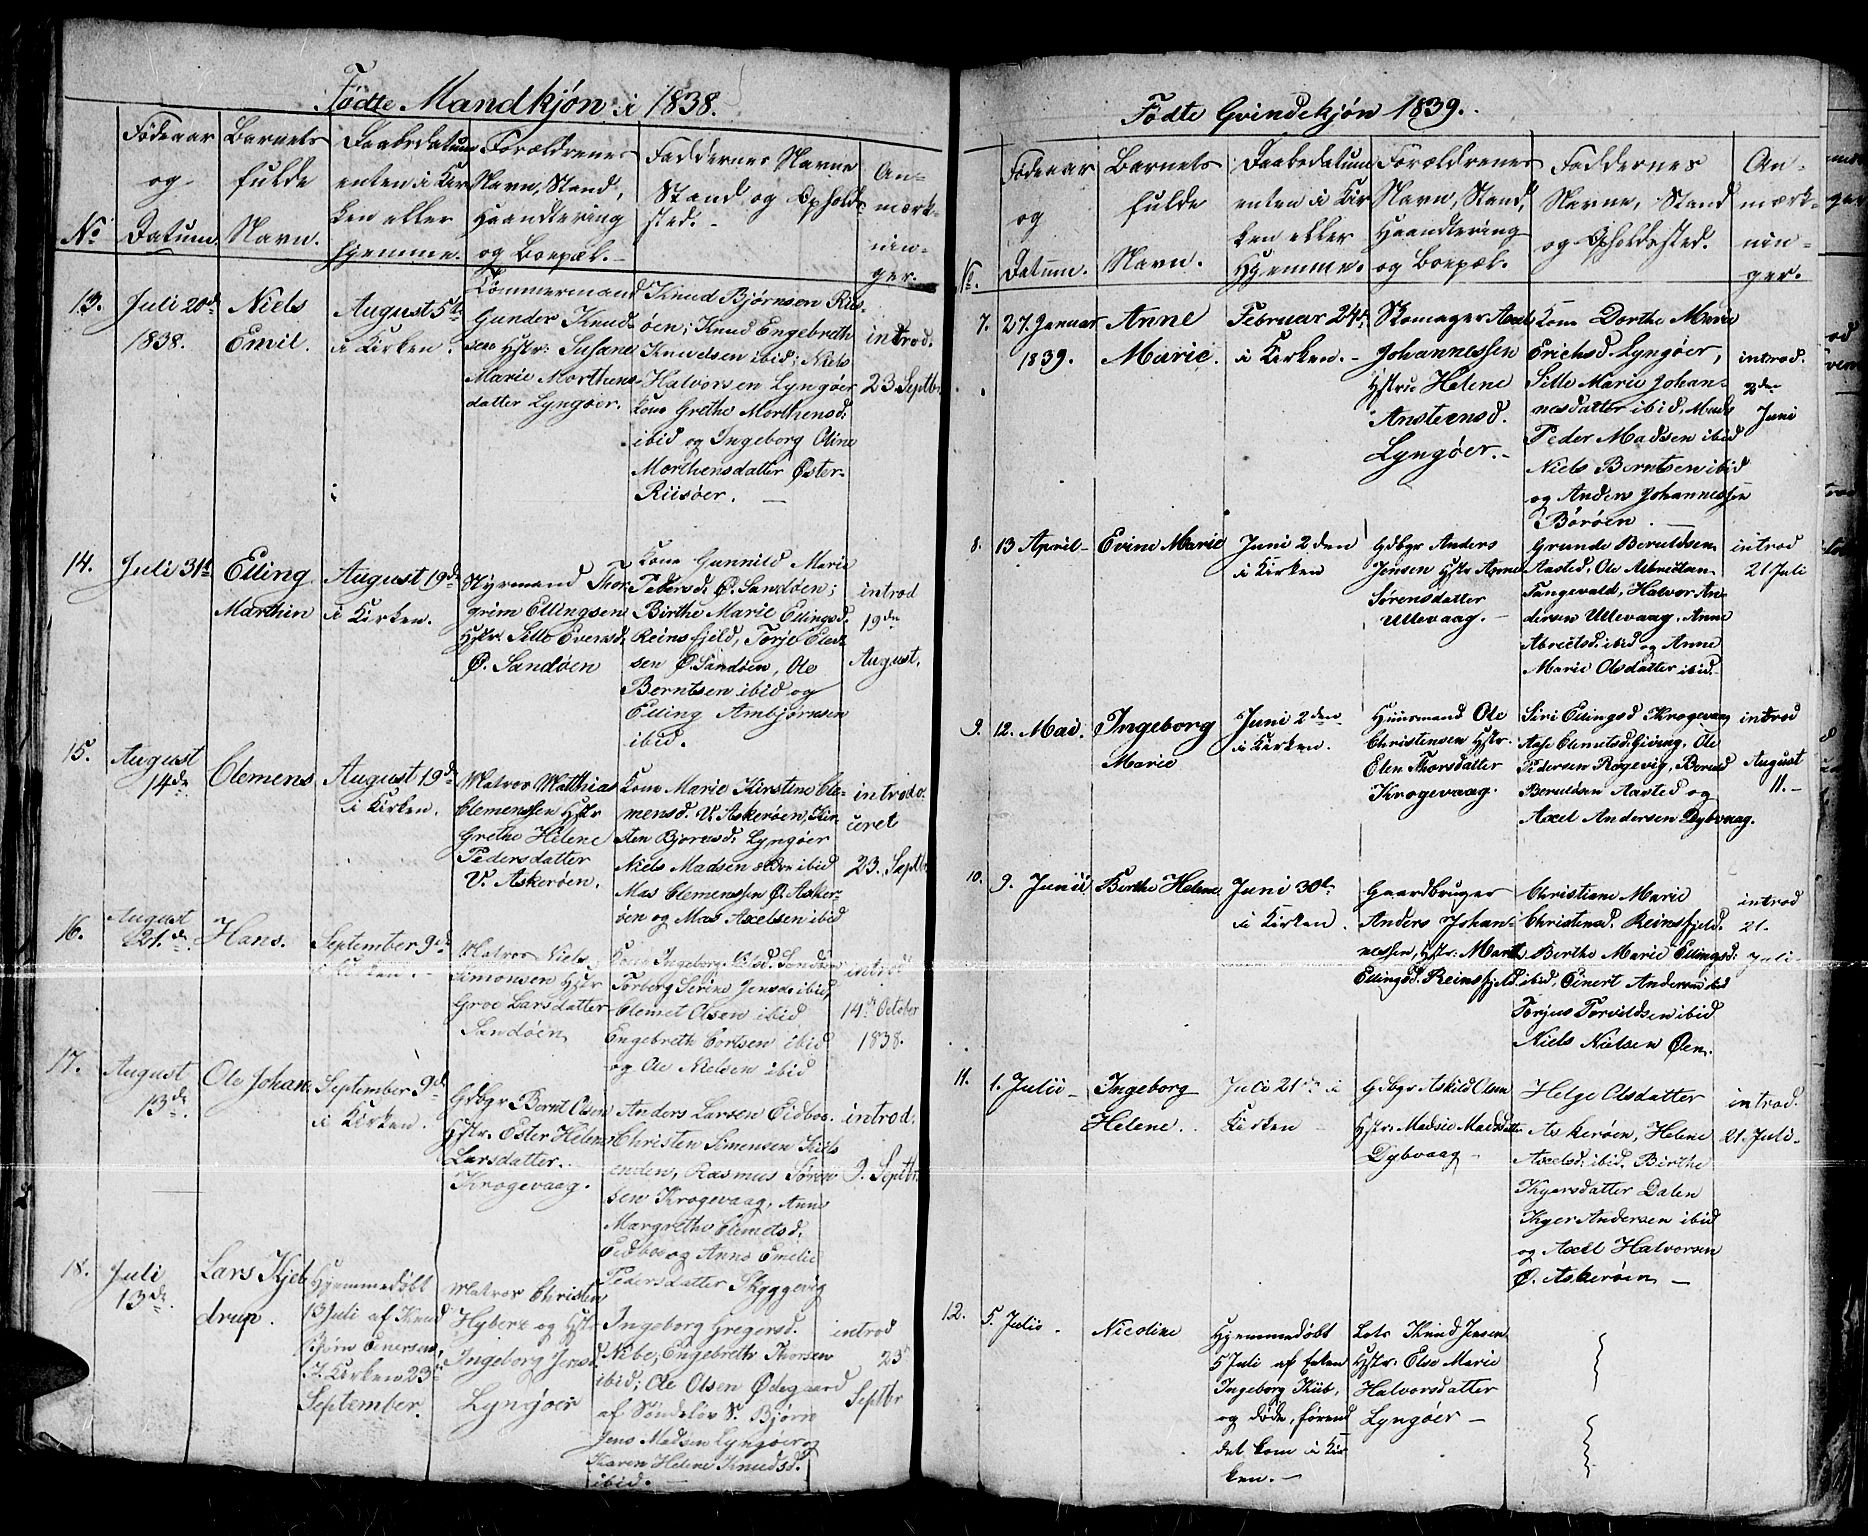 Fødte Mandkjøn i 1838.
No
Fødeaar
og
Datum.
Barnets
fulde
Navn.
Daabsdatum
enten i Kir
ken eller
hjemme.
Forældrenes
Navn, Stand,
Haandtering
og Boepæl.
Faddernes Navne
Stand og Opholds
sted.
An-
mærk-
nin-
ger.
13.
Juli 20de
1838.
Niels
Emil.
August 5te
i Kirken.
Tømmermand
Gunder Knud-
sen Hstr: Susane
Marie Morthens-
datter Lyngøer.
Knud Bjørnsen Riis-
øen; Knud Engebreth
Knudsen ibid; Niels
Halvorsen Lyngøer
Kone Grethe Morthensd:
ibid og Ingeborg Oline
Morthensdatter Øster-
Riisøer.
introd.
23 Septbr.
14.
Juli 31te
Elling
Marthin
August 19de
i Kirken.
Styrmand Thor
grim Ellingsen
Hstr: Sille Evensd.
Ø. Sandøen
Kone Gunnild Marie
Pedersd: Ø. Sandøen;
Birthe Marie Ellingsd.
Reinsfjeld, Terje
sen Ø. Sandøen, Ole
Berntsen ibid og
Elling Ambjørnsen
ibid.
introd
19de
August.
15.
August
14de
Clemens
August 19de
i Kirken.
Matros Matthias
Clemenssen Hstr
Grethe Helene
Pedersdatter
V. Askerøen.
Kone Marie Kirstine Cle-
mensd. V. Askerøen, Kir
sten Bjornsd: Lyngøer
Niels Madsen ibid
Mas Clemenssen Ø. Asker-
øen og Mas Axelsen ibid
introdu-
ceret
23. Septbr
16.
August
21.de
Hans.
September 9de
i Kirken.
Matros Niels
Simonsen Hstr
Groe Larsdatter
Sandøen
Kone Ingeborg Olsd. Sandøen
Torberg Serine Jensd: ibid,
Clemet Olsen ibid
Engebreth ibid
og Ole Nielsen ibid
introd
14de October
1838.
17.
August
13de
Ole Johan
September 9de
i Kirken.
Gdbgr Bernt Olsen
Hstr. Ester Helene
Larsdatter.
Krogevaag.
Anders Larsen Eidboe.
Christen Simensen Kiils
enden, Rasmus Søren
sen Krogevaag, Anne
Margrethe Clemetsd.
Eidboe og Anne Emelie
Pedersdatter Skyggevig
introd.
9. Septbr.
18.
Juli
13de.
Lars Kjel
drup.
Hjemmedøbt
13 Juli af Knud
Bjørn Einersen,
I Kirken 23de
September.
Matros Christen
Hybert og Hstr
Ingeborg Jensd.
Lyngøer
Ingeborg Gregersd.
Nibe, Engebreth Thorsen
ibid; Ole Olsen Ødegaard
af Søndeløv S. Bjørn
Jens Madsen Lyngøer og
Karen Helene Knudsd.
ibid.
introd
23
Septbr
Fødte Qvindekjøn 1839.
No.
Fødeaar
og
Datum.
Barnets
fulde
Navn.
Daabsdatum
enten i Kir
ken eller
Hjemme.
Forældrenes
Navn, Stand,
Haandtering
og Boepæl.
Faddernes
Navne, Stand
og Opholdssted.
An-
mærk-
nin-
ger.
7.
27. Januar
1839.
Anne
Marie.
Februar 24de
i Kirken.
Skomager Axel
Johannessen
Hstrue Helene
Anstensd.
Lyngøer.
Kone Dorthe Marie
Erichsd. Lyngøer,
Sille Marie Johan-
nesdatter ibid, Mads
Peder Madsen ibid
Niels Berntsen ibid
og Anders Johannessen
Børøen.
introd.
2den
Juni
8.
13 April
Evine Marie
Juni 2den
i Kirken
Gdbgr Anders
Jensen Hstr Anne
Sørensdatter
Ullevaag.
Grunde Beruldsen
Aasted, Ole Albretsen
Tangevald, Halvor An-
dersen Ullevaag, Anne
Abretsd. ibid og Anne
Marie Olsdatter ibid.
introd
21 Juli
9.
12. Mai.
Ingeborg
Marie
Juni 2den
i Kirken.
Huusmand Ole
Christensen Hstr.
Elen Thorsdatter
Krogevaag.
Siri Ellingsd Krogevaag
Aase Clemetsd: Giving, Ole
Pedersen Rogevig, Beruld
Beruldsen Aasted og
Axel Andersen Dybvaag.
introd
August
11.
10.
9. Junii
Berthe Helene
Juni 30te
i Kirken.
Gaardbruger
Anders Johan-
nessen, Hstr: Marth
Ellingsd. Reinsfjeld.
Christiane Marie
Christensd. Reinsfjeld.
Berthe Marie Ellingsd:
ibid, Einert Andersen ibid
Torjus Torvildsen ibid
Niels Nielsen Øen.
introd
21.
Juli
11.
1. Julii
Ingeborg
Helene.
Juli 21de i
Kirken
Gdbgr Askild Olsen
Hstr: Madsie Madsdatter
Dybvaag
Helge Olsdatter
Askerøen, Helene
Axelsd. ibid. Birthe
Kgersdatter Dalen
Kger Andersen ibid
og Axel Halvorsen
Ø. Askerøen
introd.
21. Juli.
12.
5. Julii
Nicoline
Hjemmedøbt
5 Juli af Enken
Ingeborg Kiib,
og døde, førend
det kom i Kir
ken.
Lots Knud Jensen
Hstr: Else Marie
Halvorsdatter
Lyngøer